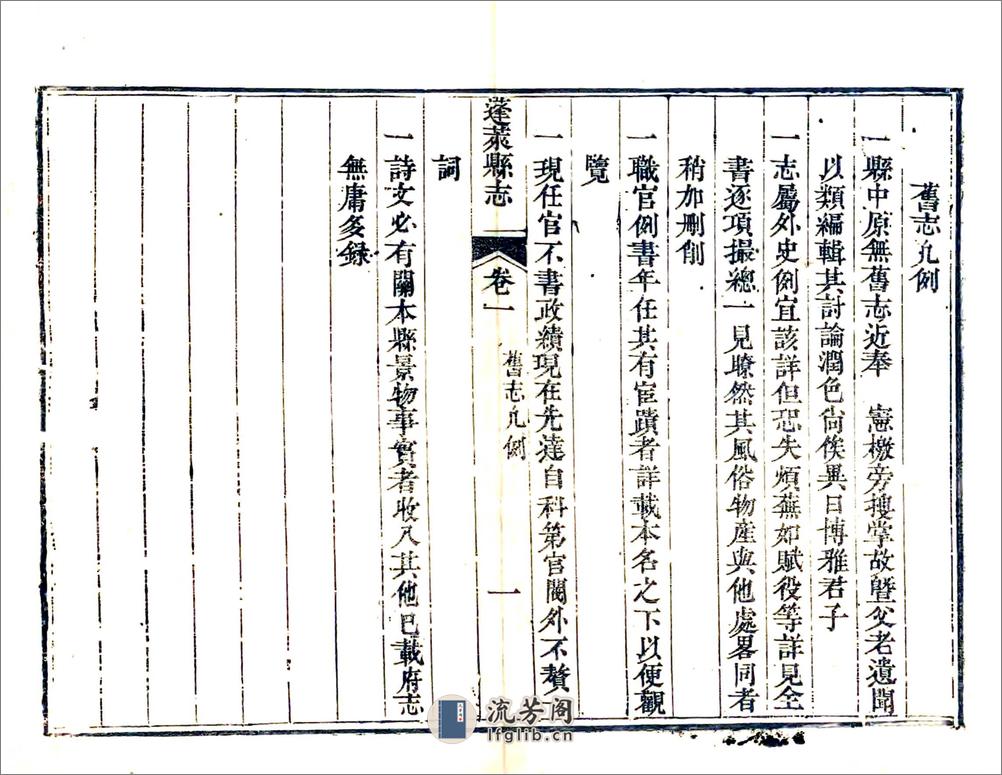 舊志凡例
一縣中原無舊志近奉　憲檄旁搜掌故曁父老遺聞
以類編輯其討論潤色尙俟異日博雅君子
一志屬外史例宜該詳但恐失煩蕪如賦役等詳見全
書逐項撮總一見瞭然其風俗物產與他處畧同者
稍加刪削
一職官例書年任其有宦蹟者詳載本名之下以便觀
覽
一現任官不書政績現在先達自科第官閥外不贅
蓬萊縣志　卷一　舊志凡例　一
詞
一詩文必有關本縣景物事實者收入其他已載府志
無庸多録
流芳阁
lfglib.cn